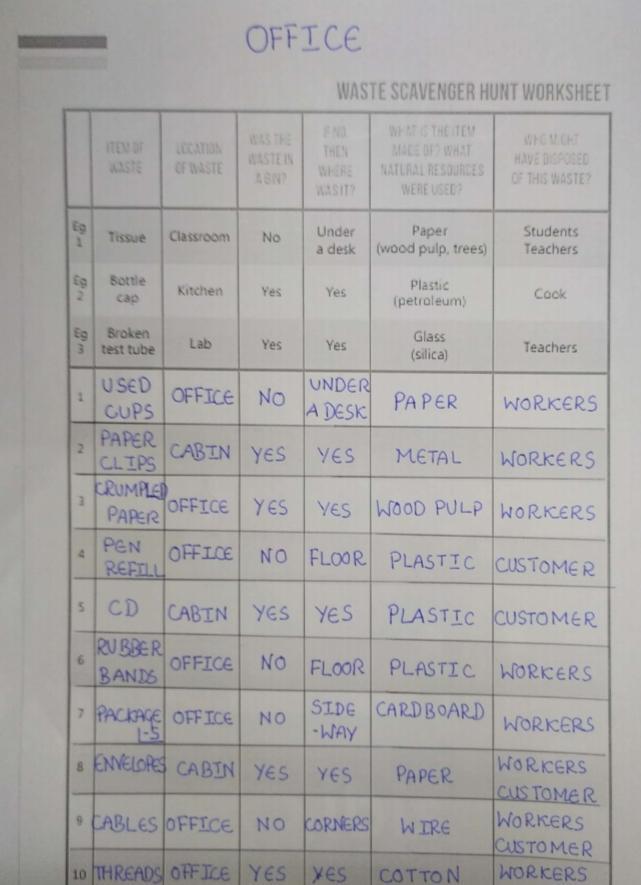 OFFICE
WASTE SCAVENGER HUNT WORKSHEET
ITEM OF WASTE LOCATION OF WASTE WAS THE WASTE IN A BIN? IF NO, THEN WHERE WAS IT? WHAT IS THE ITEM MADE OF? WHAT NATURAL RESOURCES WERE USED? WHO MIGHT HAVE DISPOSED OF THIS WASTE?
Eg 1 Tissue Classroom No Under a desk Paper (wood pulp, trees) Students Teachers
Eg 2 Bottle cap Kitchen Yes Yes Plastic (petroleum) Cook
Eg 3 Broken test tube Lab Yes Yes Glass (silica) Teachers
1 USED CUPS OFFICE NO UNDER A DESK PAPER WORKERS
2 PAPER CLIPS CABIN YES YES METAL WORKERS
3 CRUMPLED PAPER OFFICE YES YES WOOD PULP WORKERS
4 PEN REFILL OFFICE NO FLOOR PLASTIC CUSTOMER
5 CD CABIN YES YES PLASTIC CUSTOMER
6 RUBBER BANDS OFFICE NO FLOOR PLASTIC WORKERS
7 PACKAGE 1-5 OFFICE NO SIDE -WAY CARDBOARD WORKERS
8 ENVELOPES CABIN YES YES PAPER WORKERS CUSTOMER
9 CABLES OFFICE NO CORNERS WIRE WORKERS CUSTOMER
10 THREADS OFFICE YES YES COTTON WORKERS